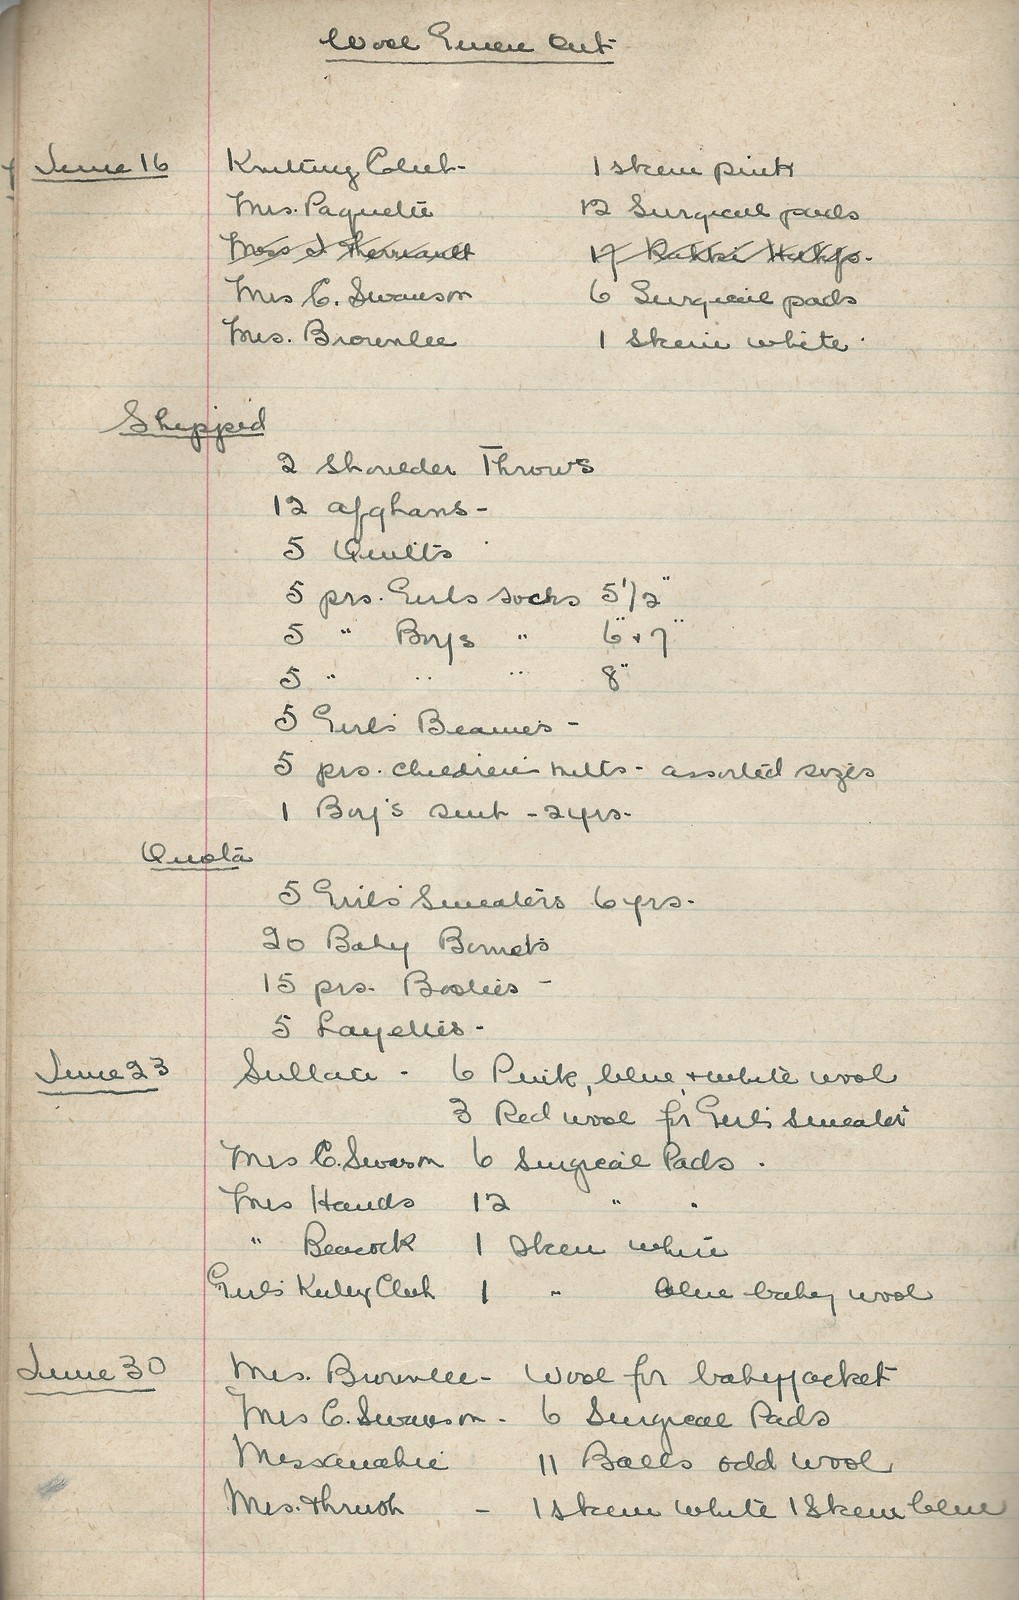 Wool Given Out
June 16 Knitting Club - 1 skein pink
Mrs. Paquette 12 Surgical pads
Miss I Therriault 17 Khaki
Mrs C. Swanson 6 Surgical pads
Mrs. Brownlee 1 Skein white
Shipped
2 Shoulder Throws
12 afghans -
5 Quilts
5 prs. Girls socks 5 1/2"
5 " Boys " 6" + 7"
5 " " " 8"
5 Girls' Beanies -
5 prs. children's mitts - assorted sizes
1 Boy's suit - 2 yrs.
Quota
5 Girls' Sweaters 6 yrs.
20 Baby Bonnets
15 prs. Booties -
5 Layettes -
June 23 Sultan - 6 Pink, blue, + white wool
3 Red wool for Girl's sweater
Mrs C. Swanson 6 Surgical Pads .
Mrs Hands 12 " "
" Beacock 1 Sken white
Girls Club 1 " blue baby wool
June 30 Mrs. Brownlee - Wool for baby jacket
Mrs C. Swanson - 6 Surgical Pads
Missanabie 11 Balls odd wool
Mrs. Thrush - 1 skein white 1 Skein blue